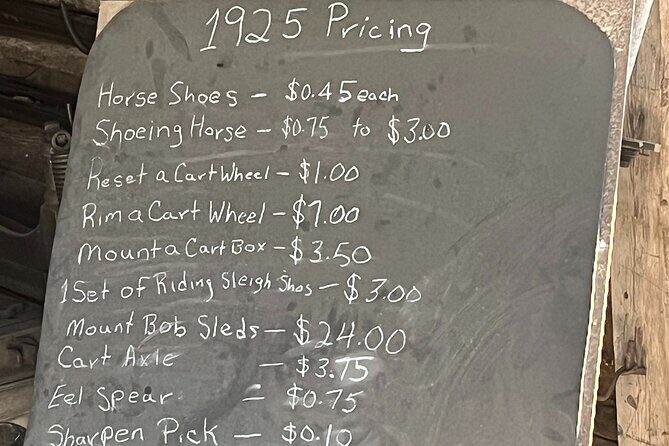 1925 Pricing
Horse Shoes - $0.45 each
Shoeing Horse - $0.75 to $3.00
Reset a Cart Wheel - $1.00
Rim a Cart Wheel - $7.00
Mount a Cart Box - $3.50
1 Set of Riding Sleigh Shos - $3.00
Mount Bob Sleds - $24.00
Cart Axle - $3.75
Eel Spear = $0.75
Sharpen Pick - $0.10